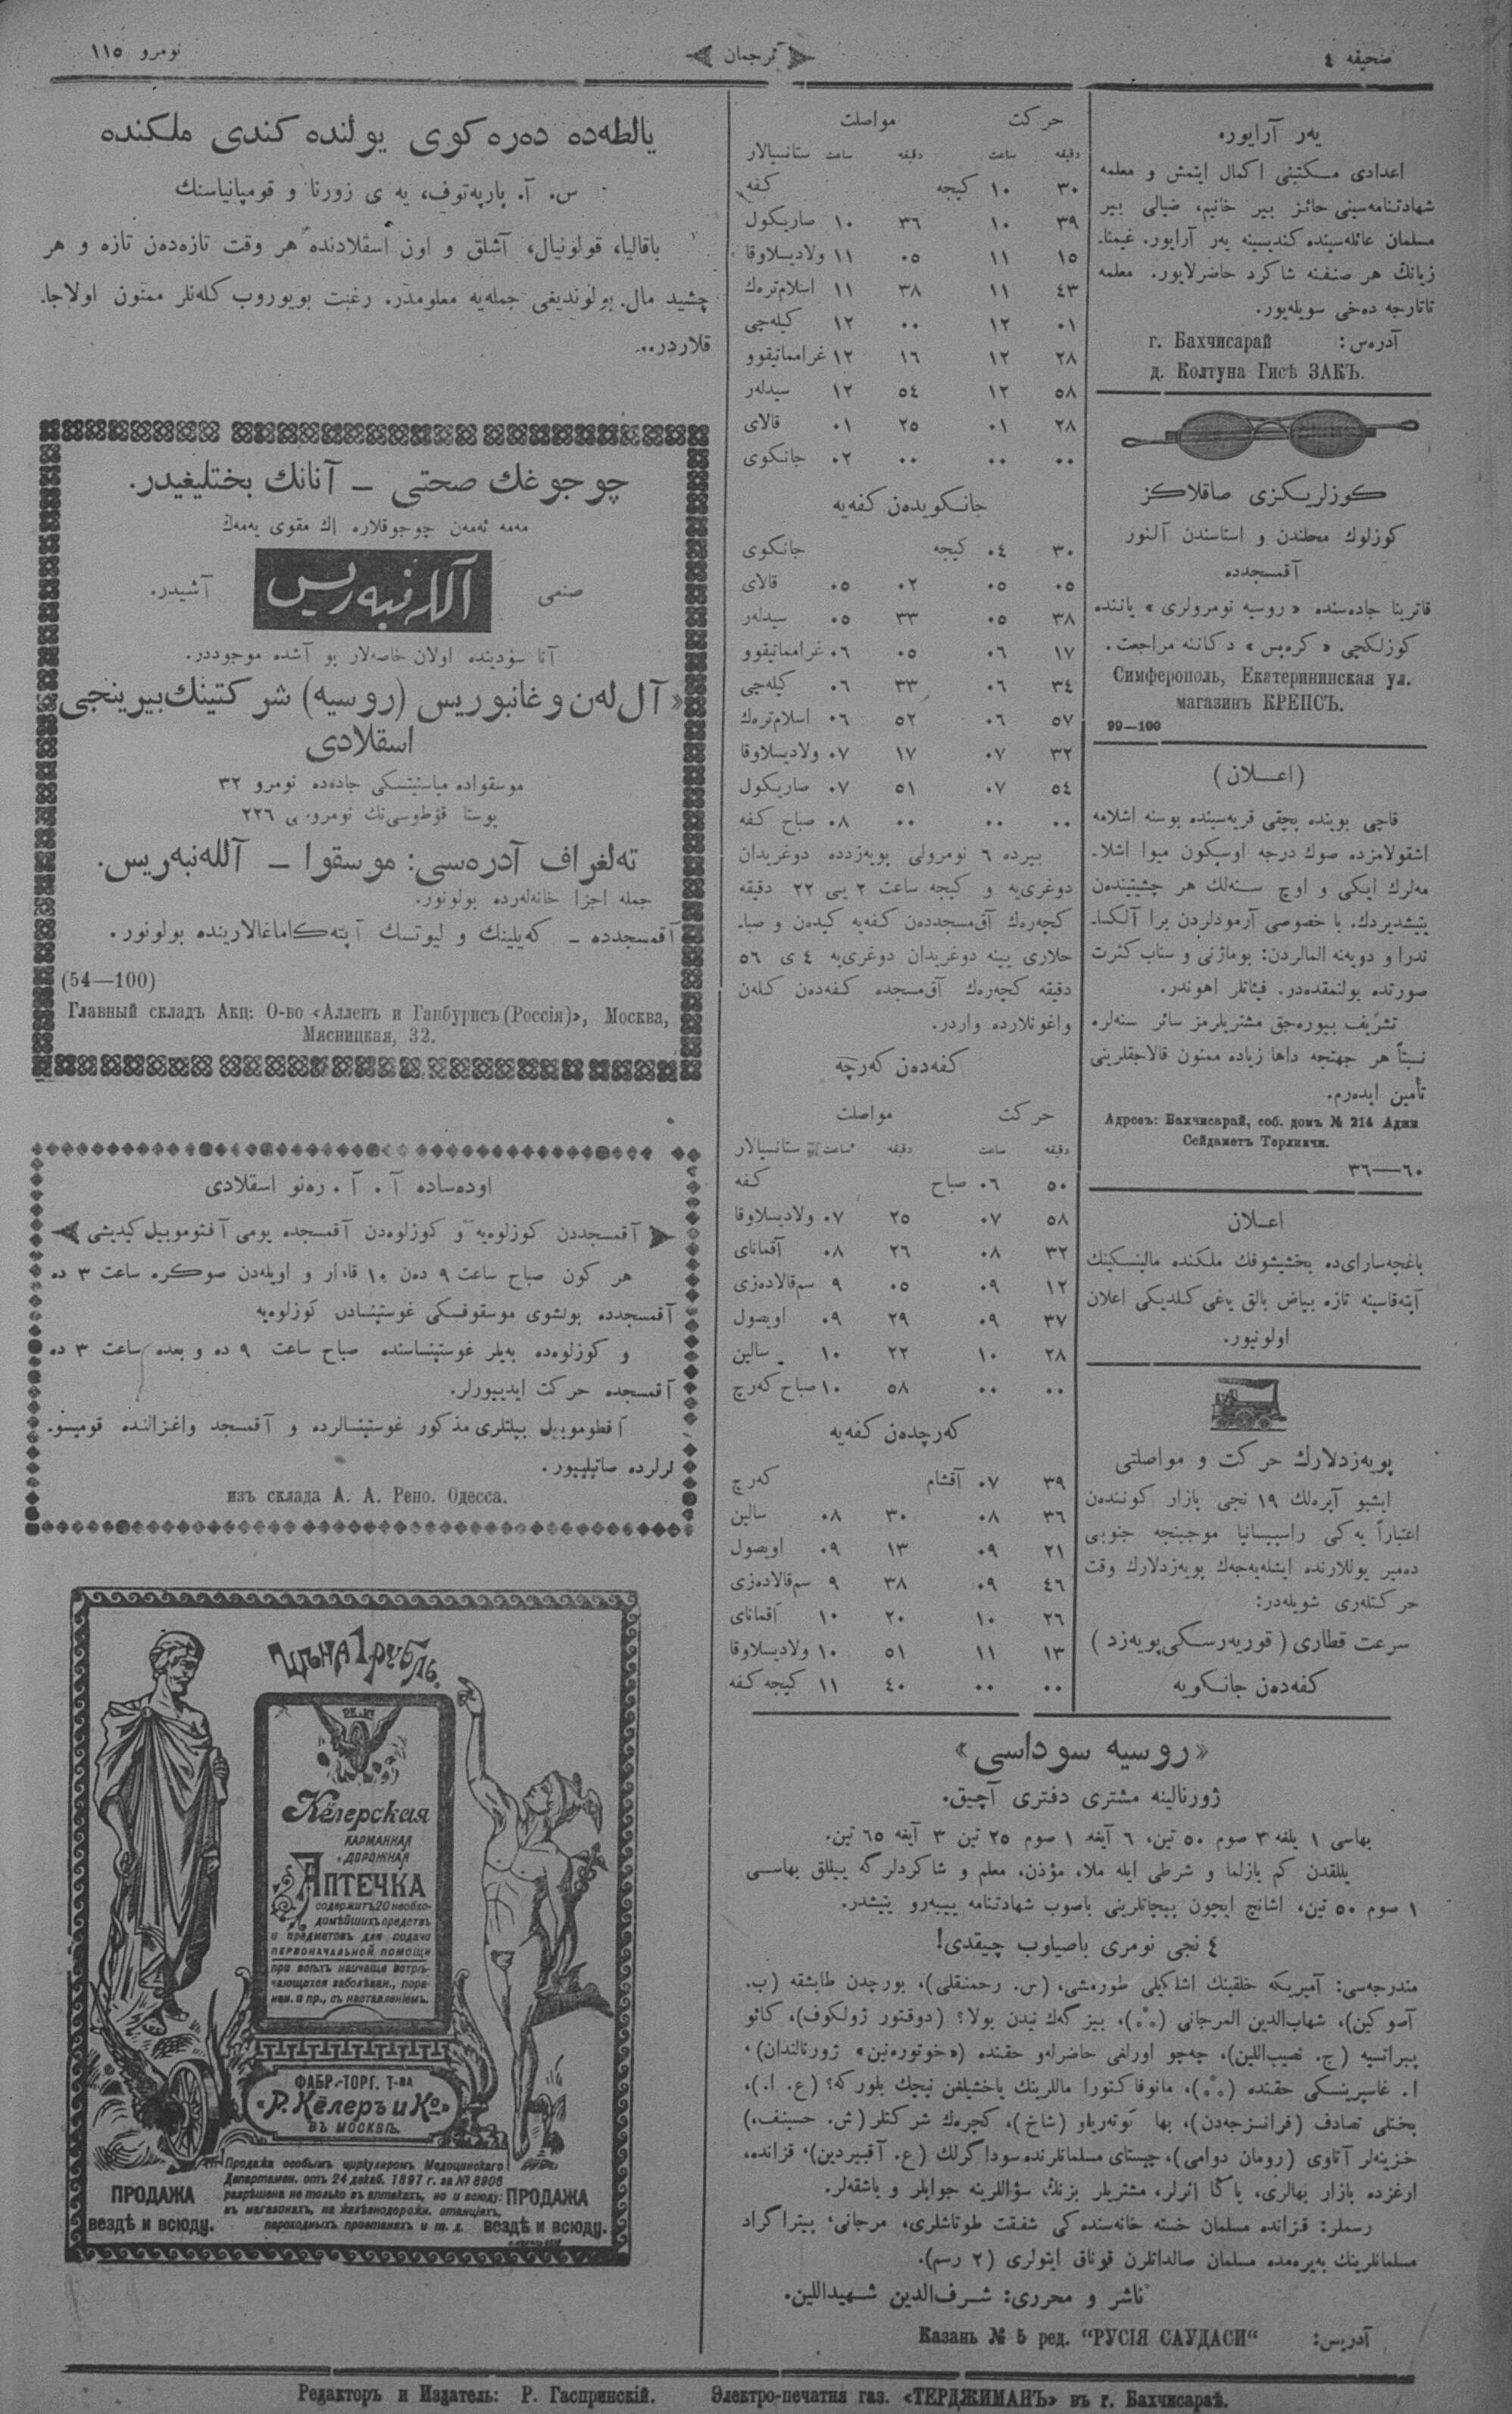 صحیفه ٤
ترجمان
نومرو ١١٥
یەر آرایورە
اعدادی مکتبنی اکمال ایتمش و معلمه
شهادتنامەسینی حائز بیر خانیم، ضیالی بیر
مسلمان عائلەسیندە کندیسینه یەر آرایور. غیمنا۔
زیانڭ هر صنفنه شاکرد حاضرلایور. معلمه
تاتارجه دەخی سویلەیور.
آدرەس: г. Бахчисарай
д. Колтуна Гисѣ ЗАКЪ.
کوزلریکزی صاقلاکز
کوزلوك محلندن و استاسندن آلنور
آقمسجددە
قاترینا جادەسندە «روسیه نومرولری» یانندە
کوزلکچی «کرەپس» دکاننه مراجعت.
Симферополь, Екатерининская ул.
магазинъ КРЕПСЪ.
99—100
(اعلان)
قاچی بویندە بچقی قریەسیندە بوسنه اشلامه
اشقولامزدە صوك درجه اوسیکون میوا اشلا۔
مەلرك ایکی و اوچ سنەلك هر چشیتیندەن
یتیشدیردك. با خصوصی آرمودلردن برا آلکسا۔
ندرا و دویەنه المالردن: بوماژنی و سناب کثرت
صورتدە بولنمقدەدر. فیئاتلر اهوندر.
تشریف بیورەجق مشتریلرمز سائر سنەلرە
نسبتاً هر جهتجه داها زیادە ممنون قالاجقلرینی
تأمین ایدەرم.
Адресъ: Бахчисарай, соб. домъ № 214 Аджи
Сейдаметъ Терликчи.
٣٦—٦٠
اعلان
باغچەسارایدە بخشیشوفك ملکندە مالینسکینك
آپتەقاسینه تازە بیاض بالق یاغی کلدیکی اعلان
اولونیور.
پویەزدلارك حرکت و مواصلتی
ایشبو آپرەلك ١٩ نجی بازار کونندەن
اعتباراً یەکی راسپیسانیا موجبنجه جنوبی
دەمیر یوللارندە ایشلەیەجەك پویەزدلارك وقت
حرکتلەری شویلەدر:
سرعت قطاری (قوریەرسکی پویەزد)
کفەدەن جانکویه
حرکت مواصلت
دقیقه ساعت دقیقه ساعت ستانسیالار
٣٠ ١٠ کیجه کفه
٣٩ ١٠ ٣٦ ١٠ صاریکول
١٥ ١١ ٠٥ ١١ ولادیسلاوقا
٤٣ ١١ ٣٨ ١١ اسلام‌ترەك
٠١ ١٢ ٠٠ ١٢ کیلەچی
٢٨ ١٢ ١٦ ١٢ غرامماتیقوو
٥٨ ١٢ ٥٤ ١٢ سیدلەر
٢٨ ٠١ ٢٥ ٠١ قالای
٠٠ ٠٠ ٠٠ ٠٢ جانکوی
جانکویدەن کفەیه
٣٠ ٠٤ کیجه جانکوی
٠٥ ٠٥ ٠٢ ٠٥ قالای
٣٨ ٠٥ ٣٣ ٠٥ سیدلەر
١٧ ٠٦ ٠٥ ٠٦ غرامماتیقوو
٣٤ ٠٦ ٣٣ ٠٦ کیلەچی
٥٧ ٠٦ ٥٢ ٠٦ اسلام‌ترەك
٣٢ ٠٧ ١٧ ٠٧ ولادیسلاوقا
٥٤ ٠٧ ٥١ ٠٧ صاریکول
٠٠ ٠٠ ٠٠ ٠٨ صباح کفه
بیردە ٦ نومرولی پویەزددە دوغریدان
دوغری‌یه و کیجه ساعت ٢ یی ٢٢ دقیقه
کچەرەك آق‌مسجددەن کفەیه کیدەن و صبا۔
حلاری یینه دوغریدان دوغری‌یه ٤ ی ٥٦
دقیقه کچەرەك آق‌مسجدە کفەدەن کلەن
واغونلاردە واردر.
کفەدەن کەرچە
حرکت مواصلت
دقیقه ساعت دقیقه ساعت ستانسیالار
٥٠ ٠٦ صباح کفه
٥٨ ٠٧ ٢٥ ٠٧ ولادیسلاوقا
٣٢ ٠٨ ٢٦ ٠٨ آقمانای
١٢ ٠٩ ٠٥ ٩ سم‌قالادەزی
٣٧ ٠٩ ٢٩ ٠٩ اویصول
٢٨ ١٠ ٢٢ ١٠ سالین
٠٠ ٠٠ ٥٨ ١٠ صباح کەرچ
کەرچدەن کفەیه
٣٩ ٠٧ آقشام کەرچ
٣٦ ٠٨ ٣٠ ٠٨ سالین
٢١ ٠٩ ١٣ ٠٩ اویصول
٤٦ ٠٩ ٣٨ ٩ سم‌قالادەزی
٢٦ ١٠ ٢٠ ١٠ آقمانای
١٣ ١١ ٥١ ١٠ ولادیسلاوقا
٠٠ ٠٠ ٤٠ ١١ کیجه کفه
«روسیه سوداسی»
ژورنالینه مشتری دفتری آچیق.
بهاسی ١ یلغه ٣ صوم ٥٠ تین، ٦ آیغه ١ صوم ٢٥ تین ٣ آیغه ٦٥ تین.
یللقدن کم یازلما و شرطی ایله ملا، مؤذن، معلم و شاکردلرگه ییللق بهاسی
١ صوم ٥٠ تین، اشانچ ایچون پیچاتلرینی باصوب شهادتنامه ییبەرو یتیشدر.
٤ نجی نومری باصیلوب چیقدی!
مندرجەسی: آمیریکه خلقینك اشلکیلی طورمشی، (س. رحمنقلی)، بورچدن طابشقه (ب.
آصوکین)، شهاب‌الدین المرجانی (⁂)، بیزگەك نیدن بولا؟ (دوقتور ژولکوف)، کائو
پیراتسیه (ج. نصیب‌اللین)، چەچو اورلغی حاضرلەو حقندە («خوتورەنین» ژورنالندان)،
ا. غاسپرینسکی حقندە (⁂)، مانوفاکتورا ماللرینك یاخشیلغن نیچك بلورکه؟ (ع. ا.)،
بختلی تصادف (فرانسزجەدن)، بها کوتەریلو (شاخ)، کچرەك شرکتلر (ش. حسینف)،
خزینەلر آتاوی (رومان دوامی)، چیستای مسلمانلرندە سوداگرلك (ع. آقبیردین)، قزاندە،
ارغزدە بازار بهالری، یاڭا اثرلر، مشتریلر بزنڭ سؤاللرینه جوابلر و باشقەلر.
رسملر: قزاندە مسلمان خسته خانەسندەکی شفقت طوتاشلری، مرجانی، پیتراگراد
مسلمانلرینك بەیرەمدە مسلمان صالداتلرن قوناق ایتولری (٢ رسم).
ناشر و محرری: شرف‌الدین شهیداللین.
آدریس: Казань № 5 ред. “РУСІЯ САУДАСИ“
یالطەدە دەرە کوی یولندە کندی ملکندە
س. آ. پاریەتوف، یە ی زورنا و قومپانیاسنك
باقالیا، قولونیال، آشلق و اون اسقلادندە هر وقت تازەدەن تازە و هر
چشید مال بولوندیغی جملەیه معلومدر. رغبت بویوروب کلەنلر ممنون اولاجا۔
قلاردر..
چوجوغك صحتی — آنانك بختلیغیدر.
مەمه ئەمەن چوجوقلارە اڭ مقوی یەمەك
صنعی آللەنبەریس آشیدر.
آنا سودیندە اولان خاصەلار بو آشدە موجوددر.
«آل لەن و غانبوریس (روسیه) شرکتینك بیرینجی
اسقلادی
موسقوادە میاسنیتسکی جادەدە نومرو ٣٢
پوستا قوطوسی‌نك نومرو‌ی ٢٢٦
تەلغراف آدرەسی: موسقوا — آللەنبەریس.
جمله اجزا خانەلەردە بولونور.
آقمسجددە — کەیلینك و لیوتسك آپتەکاماغالاریندە بولونور.
(54—100)
Главный складъ Акц: О-во «Алленъ и Ганбурисъ(Россія)», Москва,
Мясницкая, 32.
اودەسادە آ. آ. رەنو اسقلادی
آقمسجددن کوزلوەیه و کوزلوەدن آقمسجدە یومی آفتوموبیل کیدیشی
هر کون صباح ساعت ٩ دەن ١٠ قادار و اویلەدن صوکرە ساعت ٣ دە
آقمسجددە بولشوی موسقوفسکی غوستینسادن کوزلوەیه
و کوزلوەدە بەیلر غوستینساسندە صباح ساعت ٩ دە و بعدە ساعت ٣ دە
آقمسجدە حرکت ایدییورلر.
آفطوموبیل بیلتلری مذکور غوستینسالردە و آقمسجد واغزالندە قومیسو۔
لرلردە صاتیلییور.
изъ склада А. А. Рено. Одесса.
ЦѢНА 1 РУБЛЬ.
Р.К. и Ко
Кёлерская
КАРМАННАЯ
ДОРОЖНАЯ
АПТЕЧКА
содержитъ 20 необхо-
димѣйшихъ средствъ
и предметовъ для подачи
ПЕРВОНАЧАЛЬНОЙ ПОМОЩИ
при всѣхъ наичаще встрѣ-
чающихся заболѣван., пора-
нен. и пр., съ наставленіемъ.
ФАБР.-ТОРГ. Т-ва
«Р. Кёлеръ и Ко»
ВЪ МОСКВѢ.
Продажа особымъ циркуляромъ Медицинскаго
Департамен. отъ 24 декаб. 1897 г. за № 8906
разрѣшена не только въ аптекахъ, но и всюду:
въ магазинахъ, на желѣзнодорожн. станціяхъ,
пароходныхъ пристаняхъ и т. д.
ПРОДАЖА
вездѣ и всюду.
ПРОДАЖА
вездѣ и всюду.
Редакторъ и Издатель: Р. Гаспринскій. Электро-печатня газ. «ТЕРДЖИМАНЪ» въ г. Бахчисараѣ.